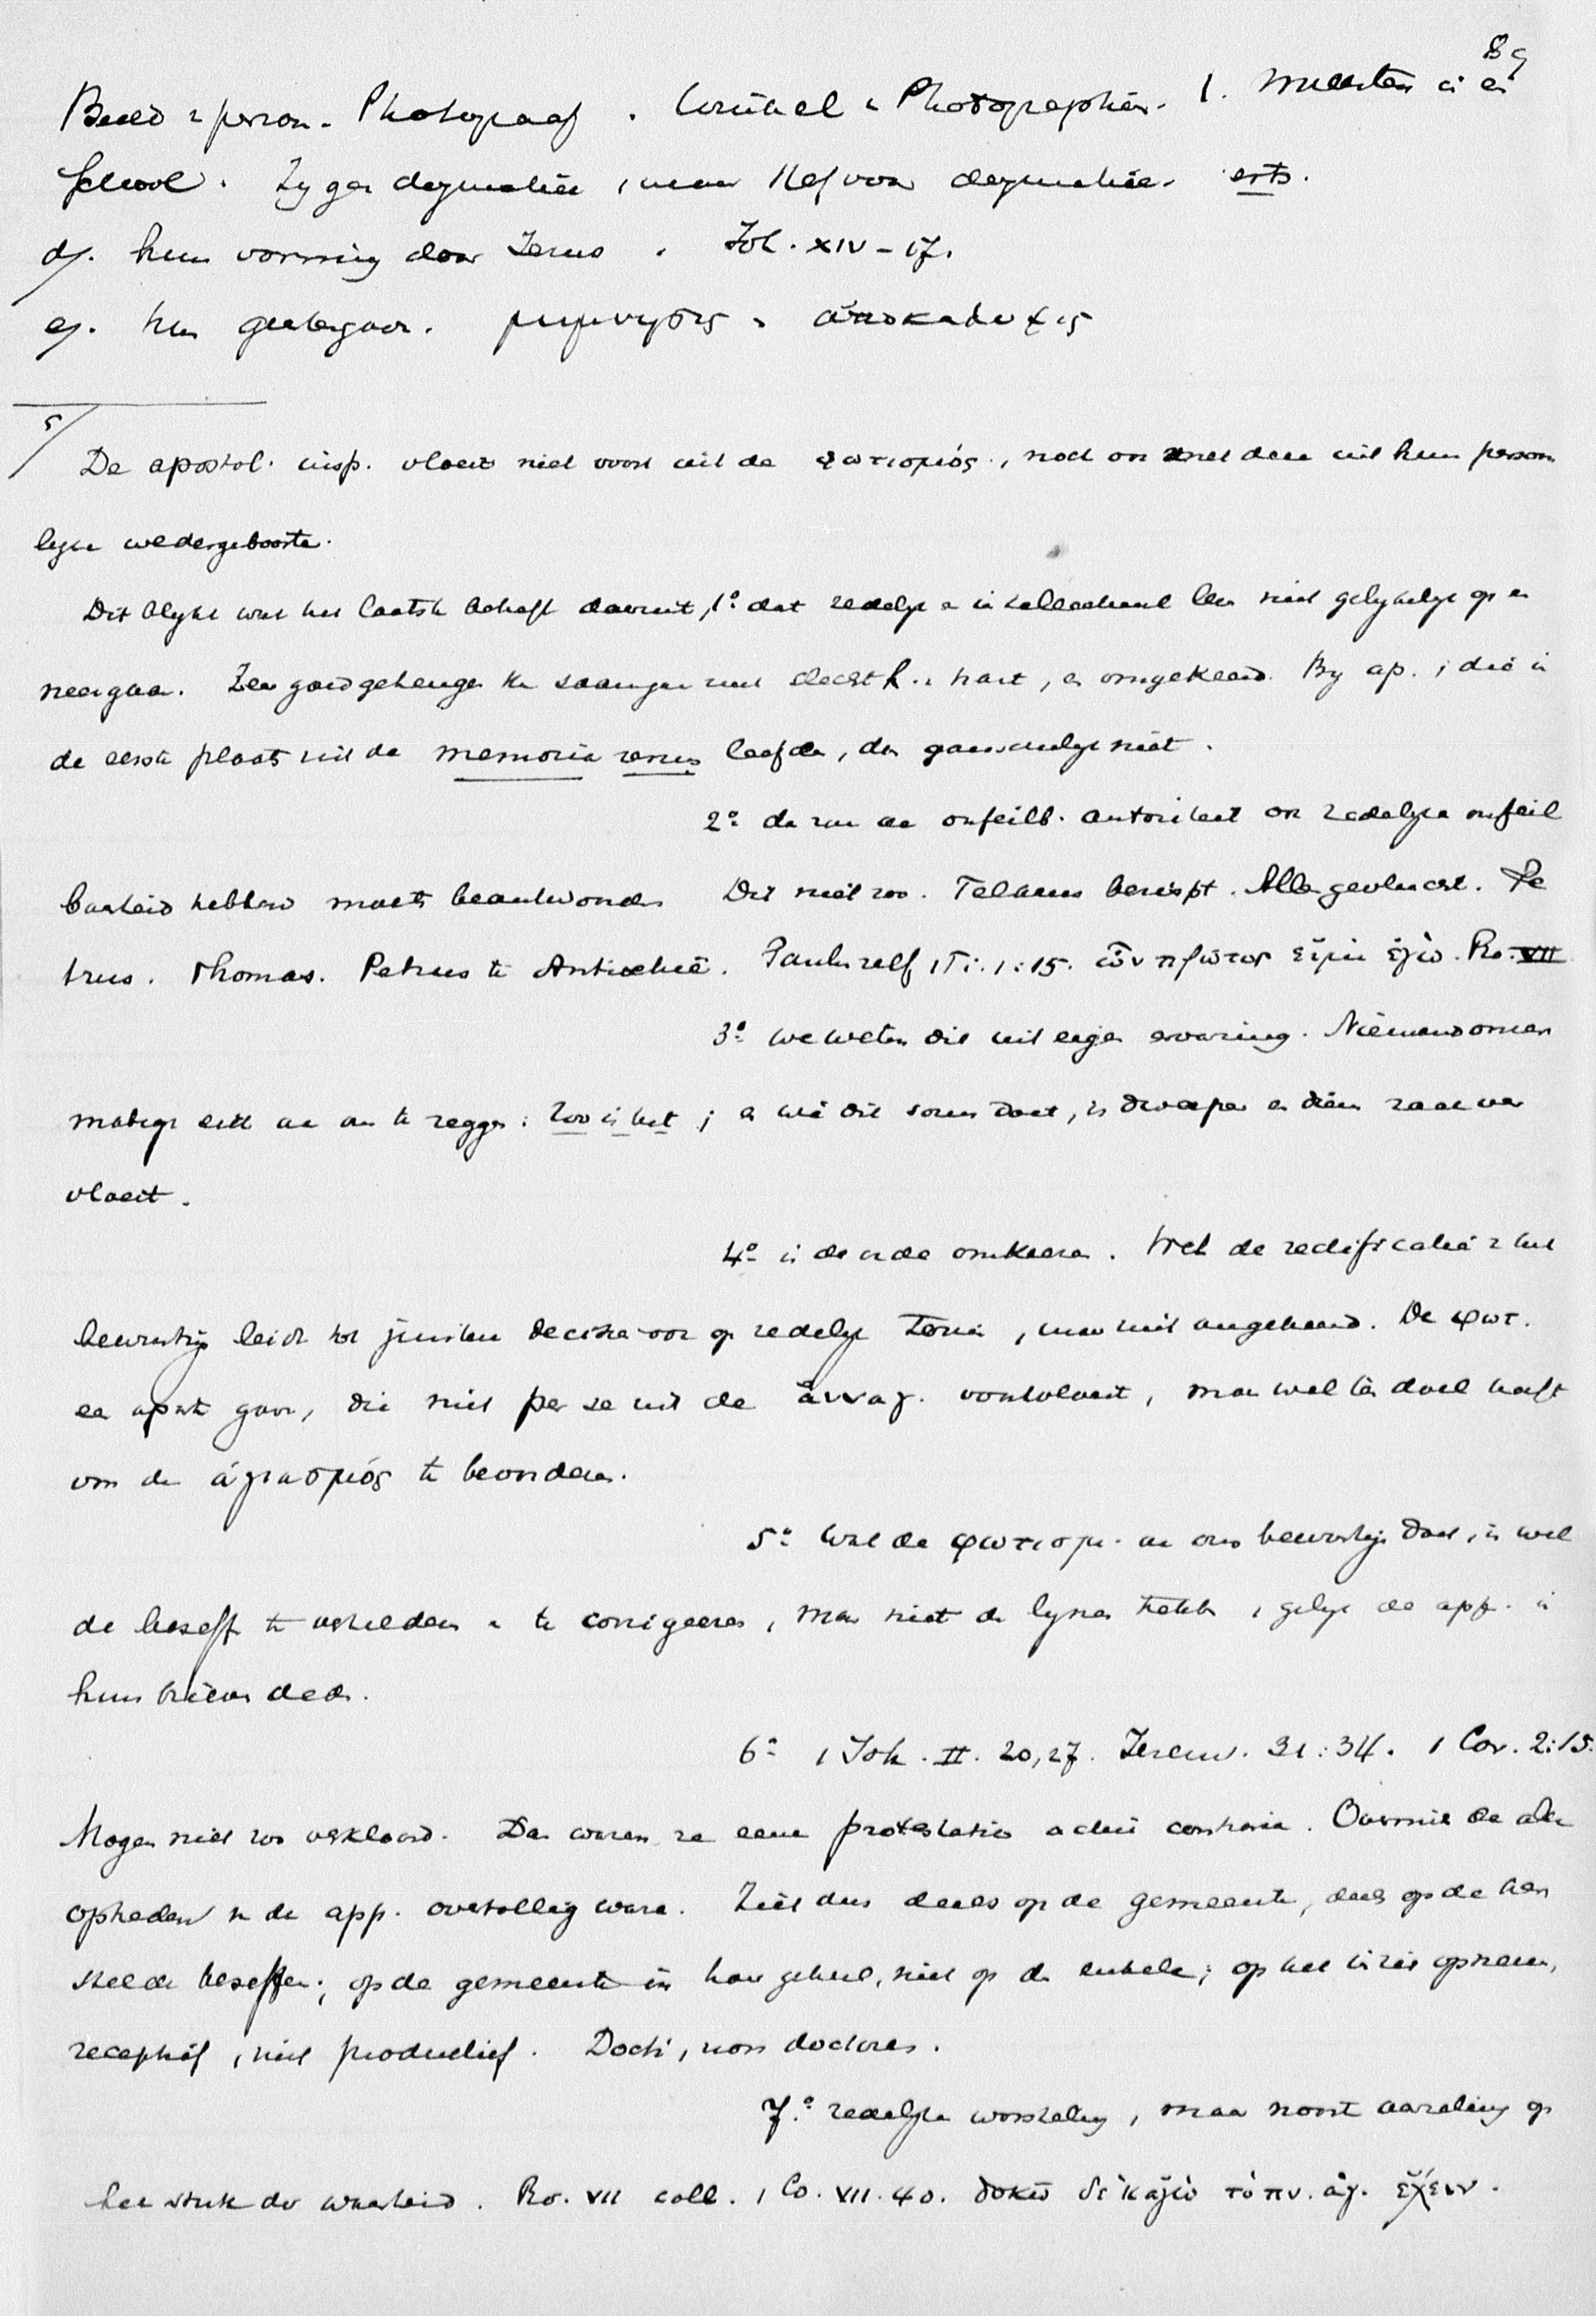 89
Beeld & person. Photograaf. & Photographiën. 1. Meester is en
School. Zy gen dogmatiek, maar Stof voor dogmatiek. ets.
d/. hun vorming door Jezus. Joh. XIV–17.
e/. hun geestesgaven. & ἀποκαλυψις
5/ De apostol. insp. vloeit niet voort uit de φωτισμός, noch ook met deze uit hun persoon
lyke wedergeboorte.
Dit blykt wat het laatste betreft daaruit, 1º dat zedelyk & intellectueel leven niet gelykelyk op en
neergaan. Zeer goed geheugen kan saamgaan met slecht k. & hart, en omgekeerd. By ap., die in
de eerste plaats uit de memoria rerum leefden, dus gansschelyk niet.
2º dan zou de onfeilb. autoriteit een zedelyke onfeil
baarheid hebben moeten beantwoorden Dit niet zoo. Telkens berispt. Allen gevlucht. Pe
trus. Thomas. Petrus te Antiochië. Paulus zelf 1 Ti. 1:15. ὧν πρῶτος εἰμι ἐγώ. Ro. VII
3º we weten dit uit eigen ervaring. Niemand onzer
matigt zich aan om te zeggen: Zoo is het; en wie dit soms doet, is dweeper en diens zaak ver
vloeit.
4º is de orde omkeeren. Wel de rectificatie & het
bewustzyn leidt tot juister decisie voor op zedelyk terrein, maar niet omgekeerd. De φωτ.
een aparte gave, die niet per se uit de ἀναγ. voortvloeit, maar wel ten doel heeft
om de ἁγιασμός te bevorderen.
5º Wat de φωτισμ. aan ons bewustzyn doet, is wel
de beseffen te verhelderen & te corrigeeren, maar niet de lynen trekken, gelyk de app. in
hun brieven deden.
6º 1 Joh. II. 20, 27. Jerem. 31:34. 1 Cor. 2:15.
Mogen niet zoo verklaard. Dan waren ze eene protestatio actui contraria. Overmits ze dan
ophieden & de app. overtollig waren. Ziet dus deels op de gemeente, deels op de her
stelde beseffen; op de gemeente in haar geheel, niet op de enkelen; op het in zich opnemen,
receptief, niet productief. Docti, non doctores.
7.º zedelyke worsteling, maar nooit aarzeling op
het stuk der waarheid. Ro. VII coll. 1 Co. VII. 40. δοκῶ δὲ κἀγὼ τὸ πν. ἁγ. ἔχειν.